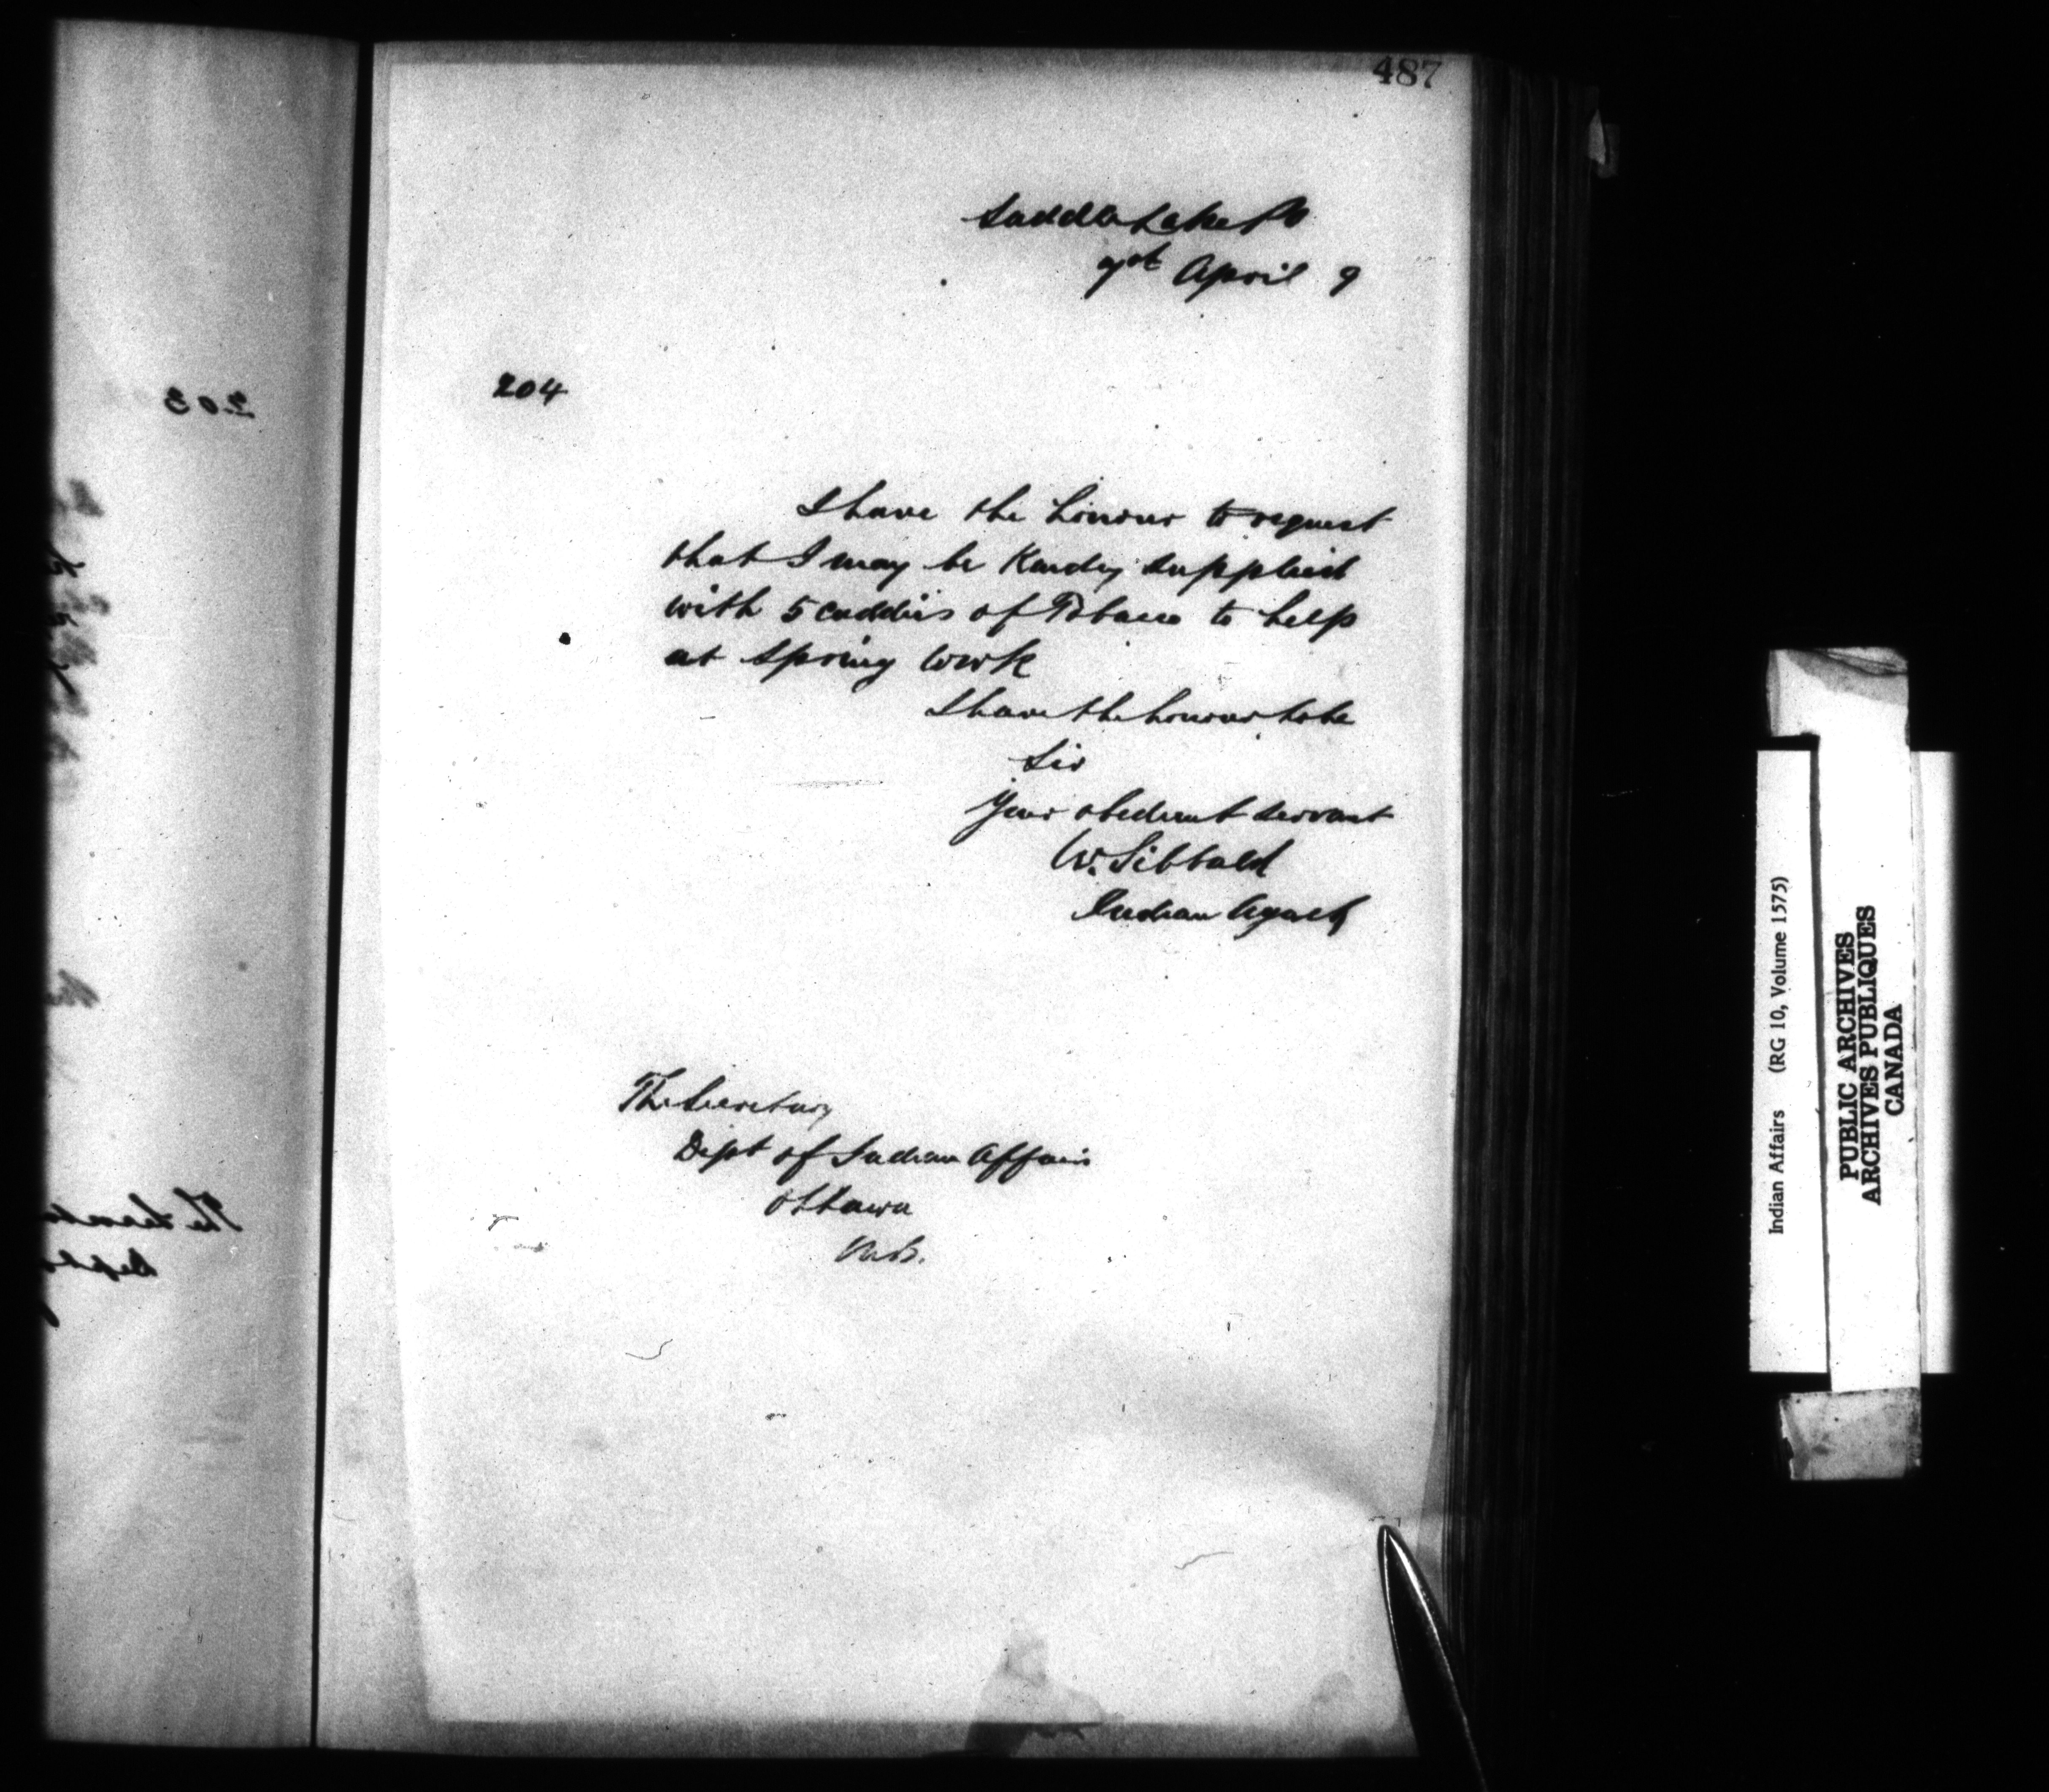 487
Saddle Lake PO
April 9
204
I have the honour to request
that I may be Kindly supplied
with 5 caddies of Tobacco to help
at Spring work
I have the honour to be
Sir
Your obedient servant
W. Sibbald
Indian Agent
The Secretary
Dept of Indian Affairs
Ottawa
203
The
Indian Affairs (RG 10, Volume 1575)
PUBLIC ARCHIVES
ARCHIVES PUBLIQUES
CANADA